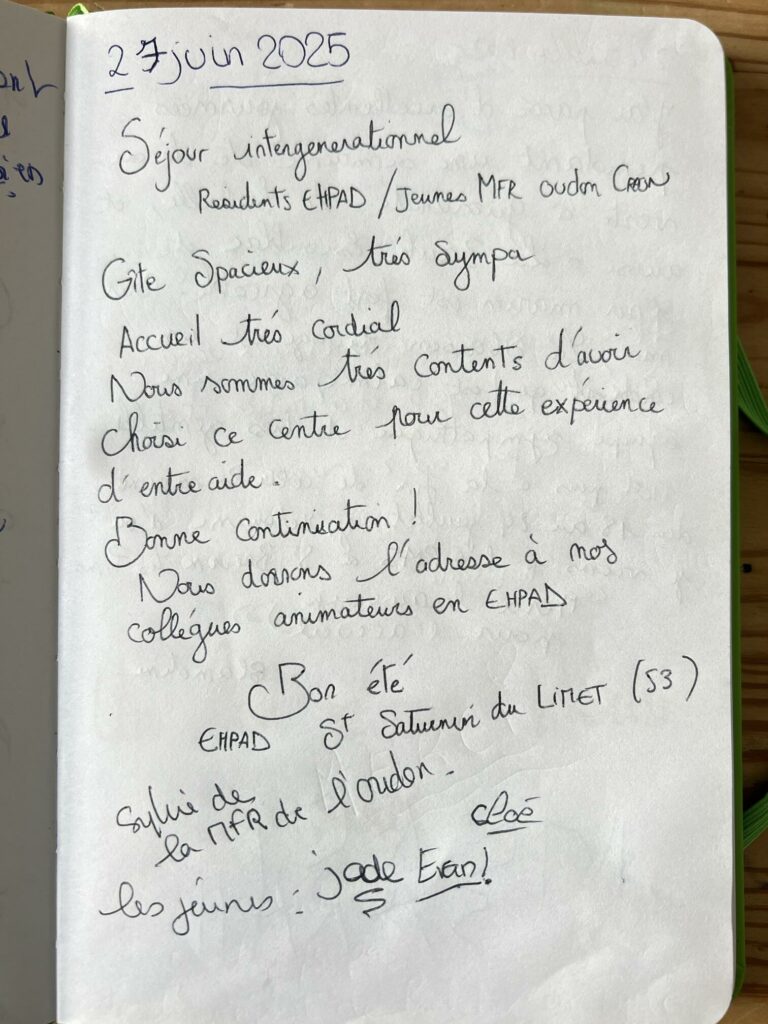 27 juin 2025
Séjour intergenerationnel
Residents EHPAD / Jeunes MFR oudon CRAON
Gîte Spacieux, trés Sympa
Accueil trés cordial
Nous sommes trés contents d'avoir
choisi ce centre pour cette expérience
d'entre aide.
Bonne continuation !
Nous donnons l'adresse à nos
collégues animateurs en EHPAD
Bon été
EHPAD St Saturnin du LIMET (53)
Sylvie de
la MFR de l'oudon.
Cloé
les jeunes : jade Evan!